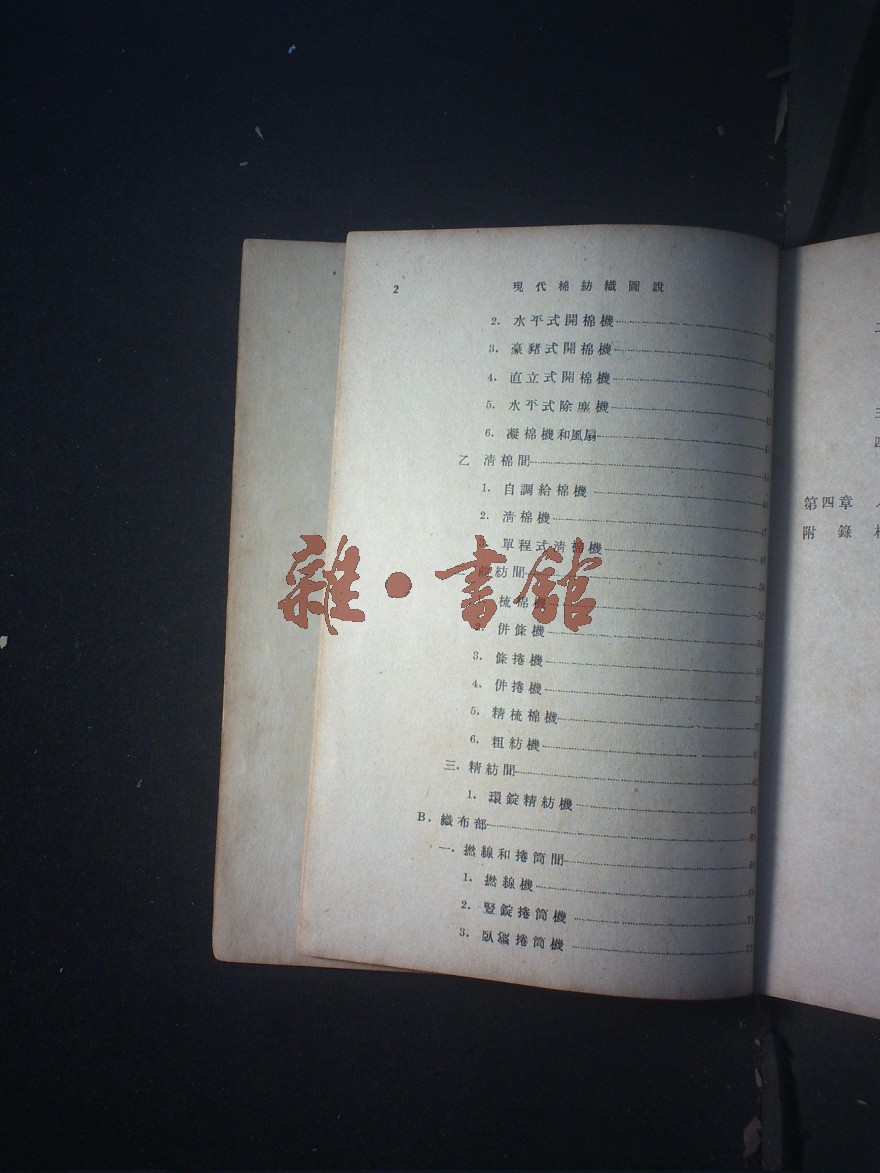 2 現代棉紡織圖說
2. 水平式開棉機
3. 豪豬式開棉機
4. 直立式開棉機
5. 水平式除塵機
6. 凝棉機和風扇
乙 清棉間
1. 自調給棉機
2. 清棉機 47
單程式清棉機
紡間 50
梳棉機
併條機
3. 條捲機
4. 併捲機
5. 精梳棉機
6. 粗紡機
三. 精紡間
1. 環錠精紡機 64
B. 織布部
一. 撚線和捲筒間
1. 撚線機
2. 豎錠捲筒機 71
3. 臥錠捲筒機 72
第四章
附錄
雜·書館